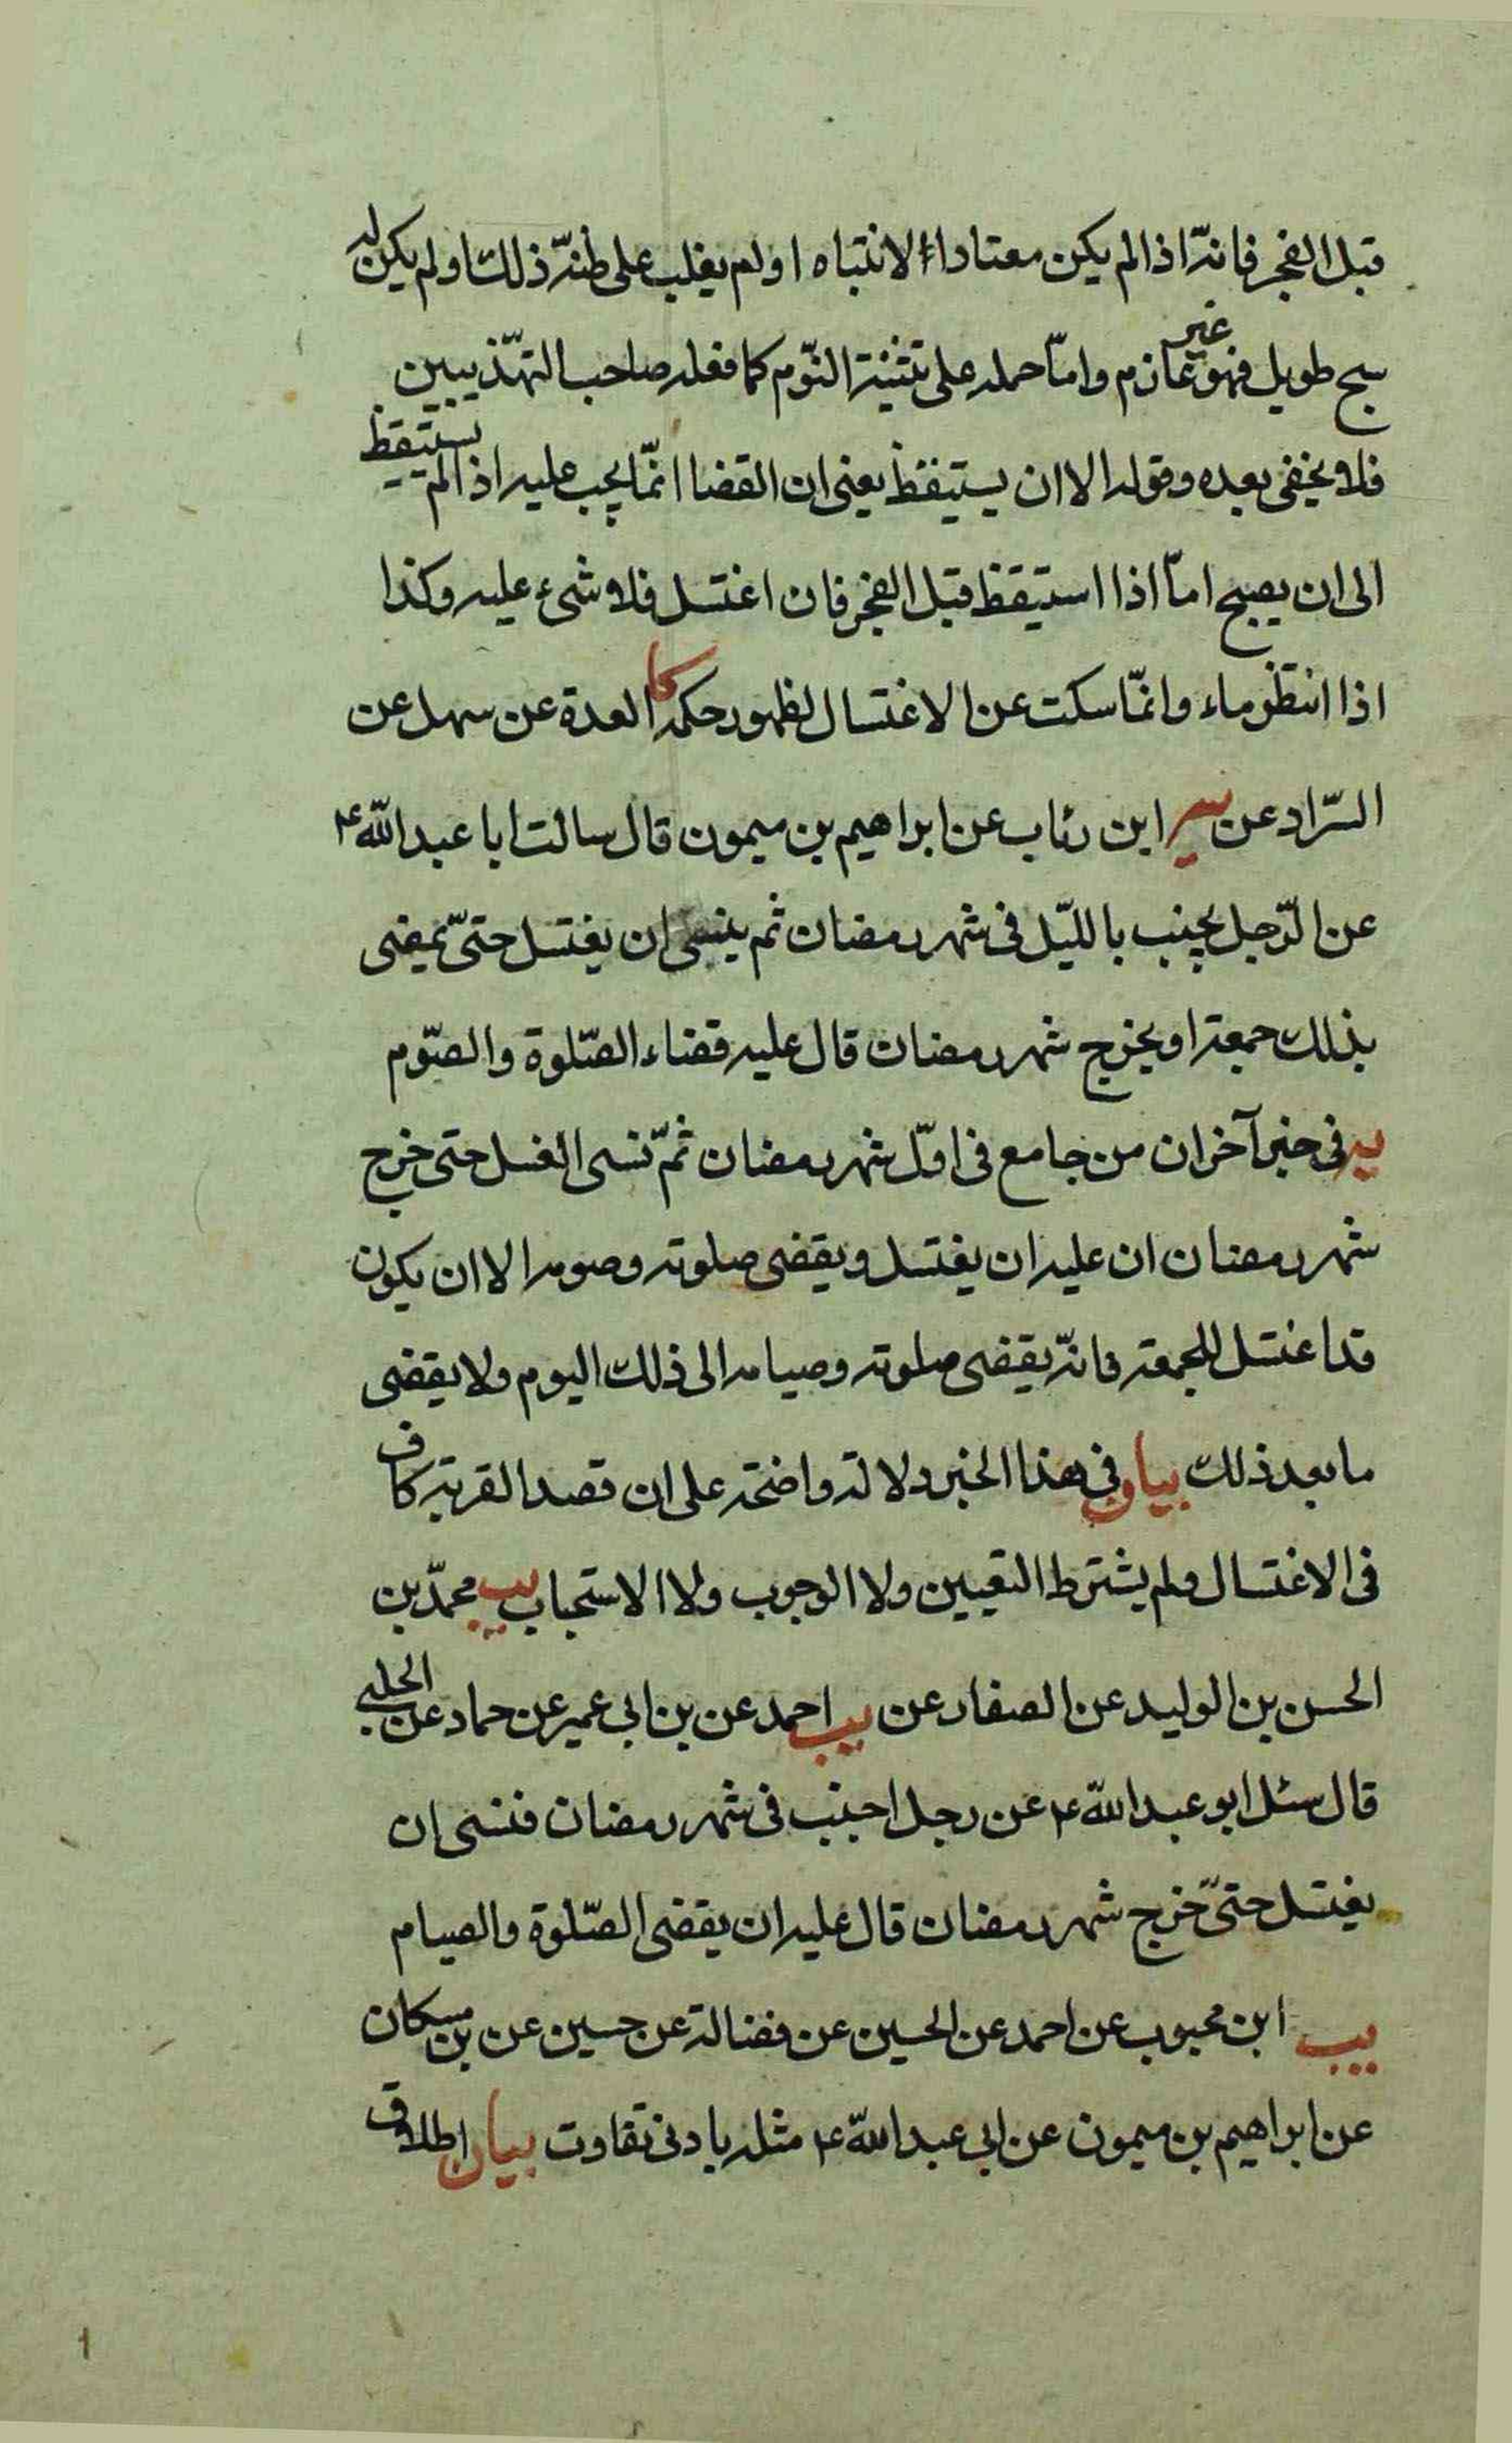 قبل الفجر فانّه اذا لم يكن معتادا الانتباه او لم يغلب على ظنّه ذلك او لم يكن له
سبح طويل فهو غير عازم وامّا حمله على تثنية النّوم كما فعله صاحب التهّذيبين
فلا يخفى بعده وقوله الا ان يستيقظ يعنى ان القضا انّما يجب عليه اذا لم يستيقظ
الى ان يصبح امّا اذا استيقظ قبل الفجر فان اغتسل فلا شىء عليه وكذا
اذا انتظر ماء وانمّا سكت عن الاغتسال لظهور حكمه كا العدة عن سهل عن
السّراد عن ابن رئاب عن ابراهيم بن ميمون قال سالت ابا عبد اللّه ع
عن الرّجل يجنب بالليّل فى شهر رمضان ثم ينسى ان يغتسل حتىّ يمضى
بذلك جمعة او يخرج شهر رمضان قال عليه قضاء الصّلوة والصّوم
يه فى خبر آخر ان من جامع فى اوّل شهر رمضان ثمّ نسى الغسل حتى خرج
شهر رمضان ان عليه ان يغتسل ويقضى صلوته وصومه الا ان يكون
قد اغتسل للجمعة فانّه يقضى صلوته وصيامه الى ذلك اليوم ولا يقضى
ما بعد ذلك بيان فى هذا الخبر دلالة واضحة على ان قصد القربة كاف
فى الاغتسال ولم يشترط التعيين ولا الوجوب ولا الاستحباب يب محمّد بن
الحسن بن الوليد عن الصفار عن يب احمد عن بن ابى عمير عن حماد عن الحلبى
قال سئل ابو عبد اللّه ع عن رجل اجنب فى شهر رمضان فنسى ان
يغتسل حتىّ خرج شهر رمضان قال عليه ان يقضى الصّلوة والصيام
يب ابن محبوب عن احمد عن الحسين عن فضالة عن حسين عن بن مسكان
عن ابراهيم بن ميمون عن ابى عبد اللّه ع مثله بادنى تفاوت بيان اطلاق